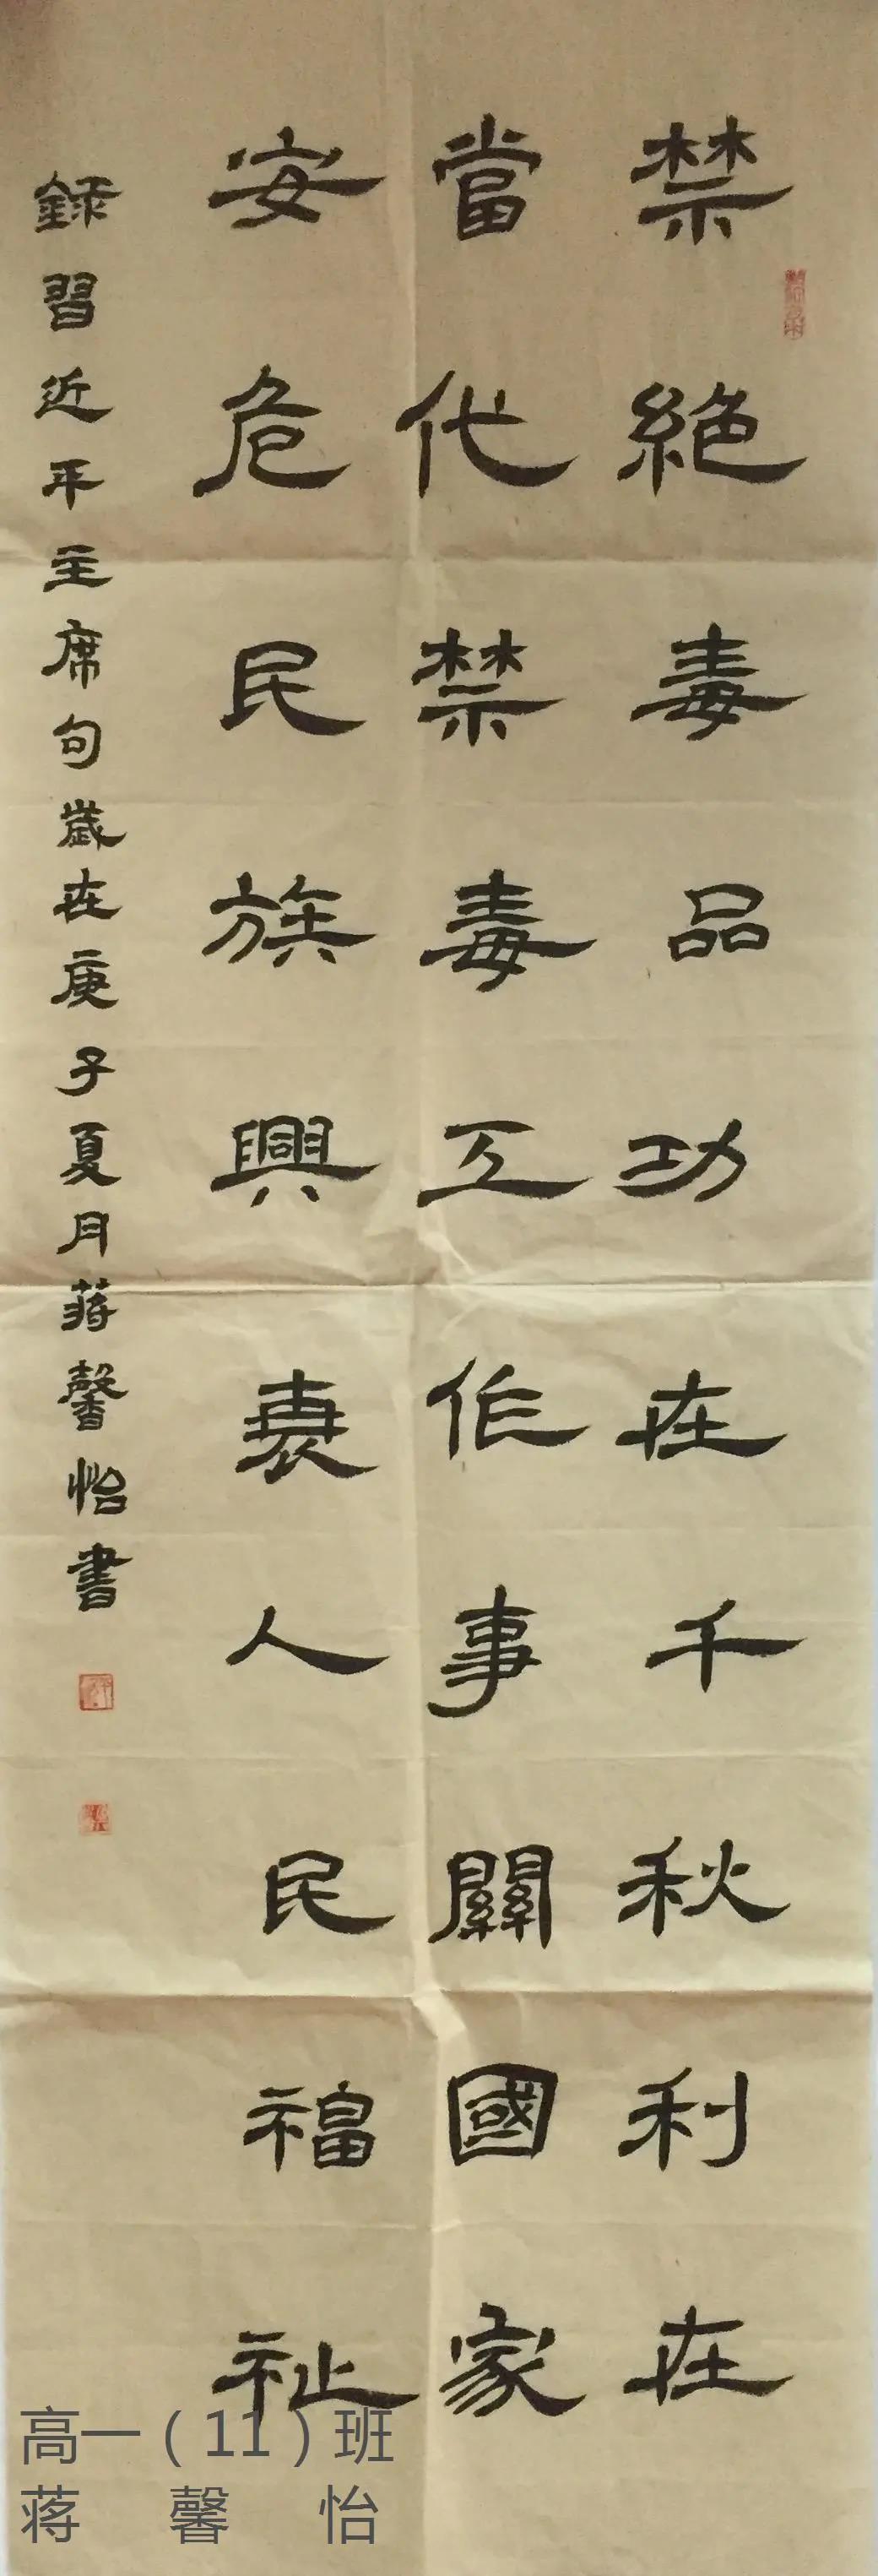 禁絕毒品功在千秋利在
當代禁毒工作事關國家
安危民族興衰人民福祉
錄習近平主席句歲在庚子夏月蔣馨怡書
高一（11）班
蒋馨怡